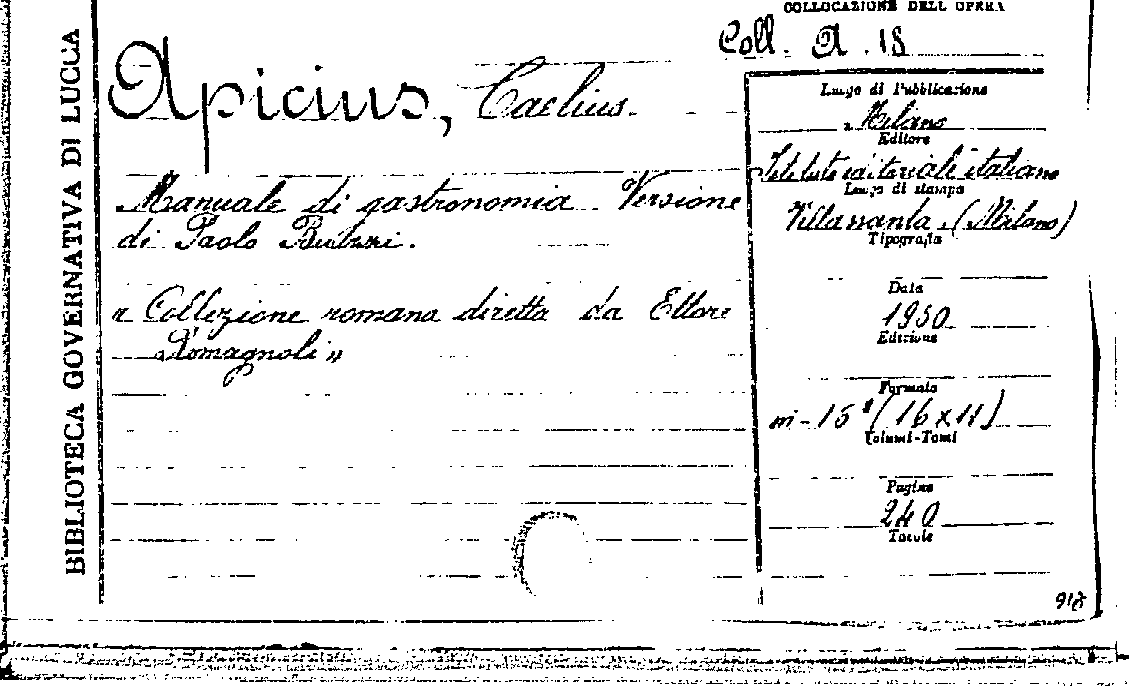 BIBLIOTECA GOVERNATIVA DI LUCCA
COLLOCAZIONE DELL'OPERA
Coll. A. 18
Apicius, Caelius.
Manuale di gastronomia. Versione
di Paolo
"Collezione romana diretta da Ettore
Romagnoli"
Luogo di Pubblicazione
Milano
Editore
Istituto editoriale italiano
Luogo di stampa
Villasanta (Milano)
Tipografia
Data
1930
Edizione
Formato
in-15° (16x11)
Volumi-Tomi
Pagine
240
Tavole